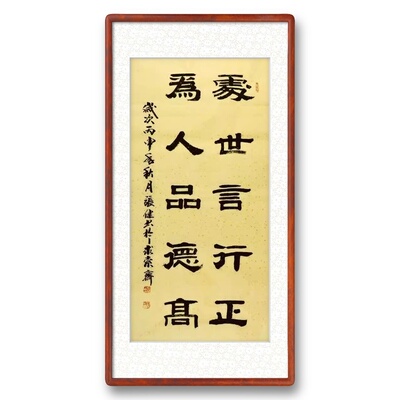 處世言行正
為人品德高
歲次丙申年秋月張健書於